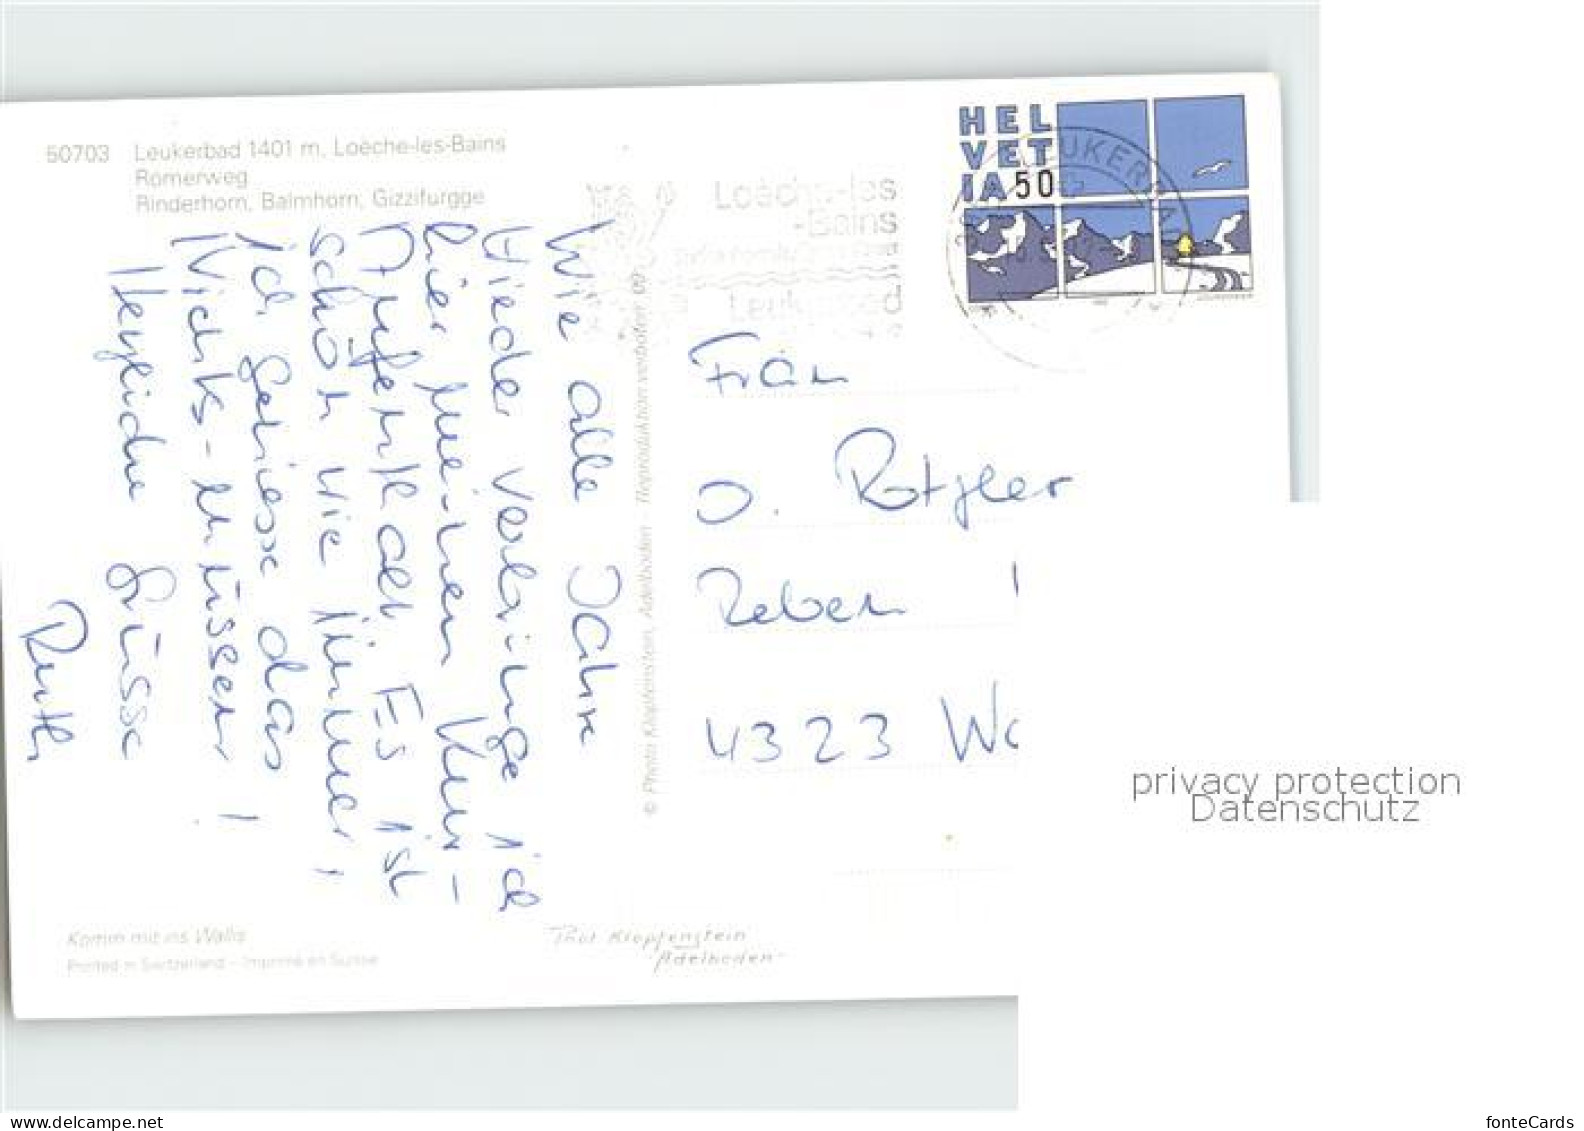 50703 Leukerbad 1401 m, Loèche-les-Bains
Römerweg
Rinderhorn, Balmhorn, Gizzifurgge
Loèche-les
-Bains
Leukerbad
HEL
VET
IA 50
LEUKERBAD
Wie alle Jahre
wieder verbringe ich
hier meinen Kur-
Aufenthalt. Es ist
schön wie immer,
ich geniesse das
Nichts-müssen!
Herzliche Grüsse
Ruth
© Photo Klopfenstein, Adelboden - Reproduktion verboten 09
Frau
O. Rotzler
Reben
4323 Wa
Komm mit ins Wallis
Printed in Switzerland - Imprimé en Suisse
Phot Klopfenstein
Adelboden
privacy protection
Datenschutz
www.delcampe.net
fonteCards